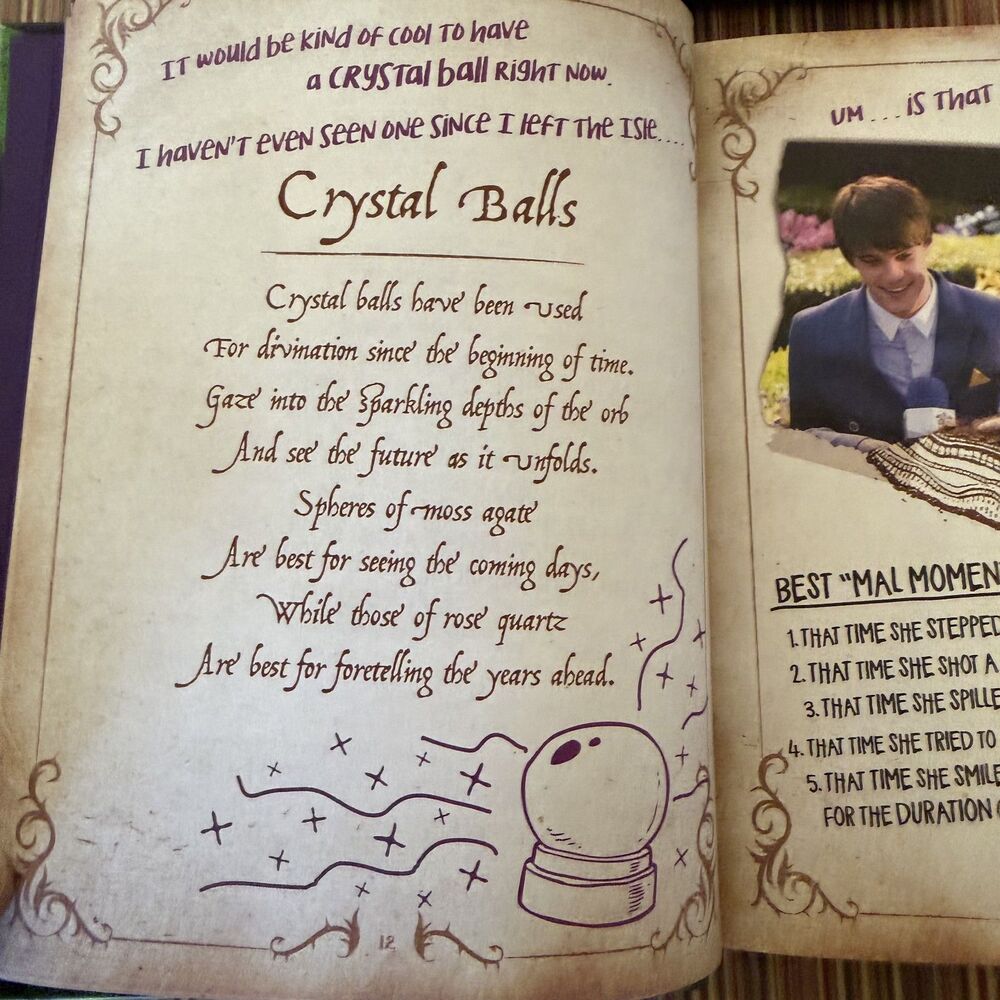 IT would be kind of cool to have
a crystal ball right now.
I haven't even seen one since I left the Isle....
Crystal Balls
Crystal balls have been used
For divination since the beginning of time.
Gaze into the Sparkling depths of the orb
And see the future as it unfolds.
Spheres of moss agate
Are best for seeing the coming days,
While those of rose quartz
Are best for foretelling the years ahead.
12
UM... IS THAT
BEST "MAL MOMEN
1. THAT TIME SHE STEPPED
2. THAT TIME SHE SHOT A
3. THAT TIME SHE SPILLE
4. THAT TIME SHE TRIED TO
5. THAT TIME SHE SMILE
FOR THE DURATION